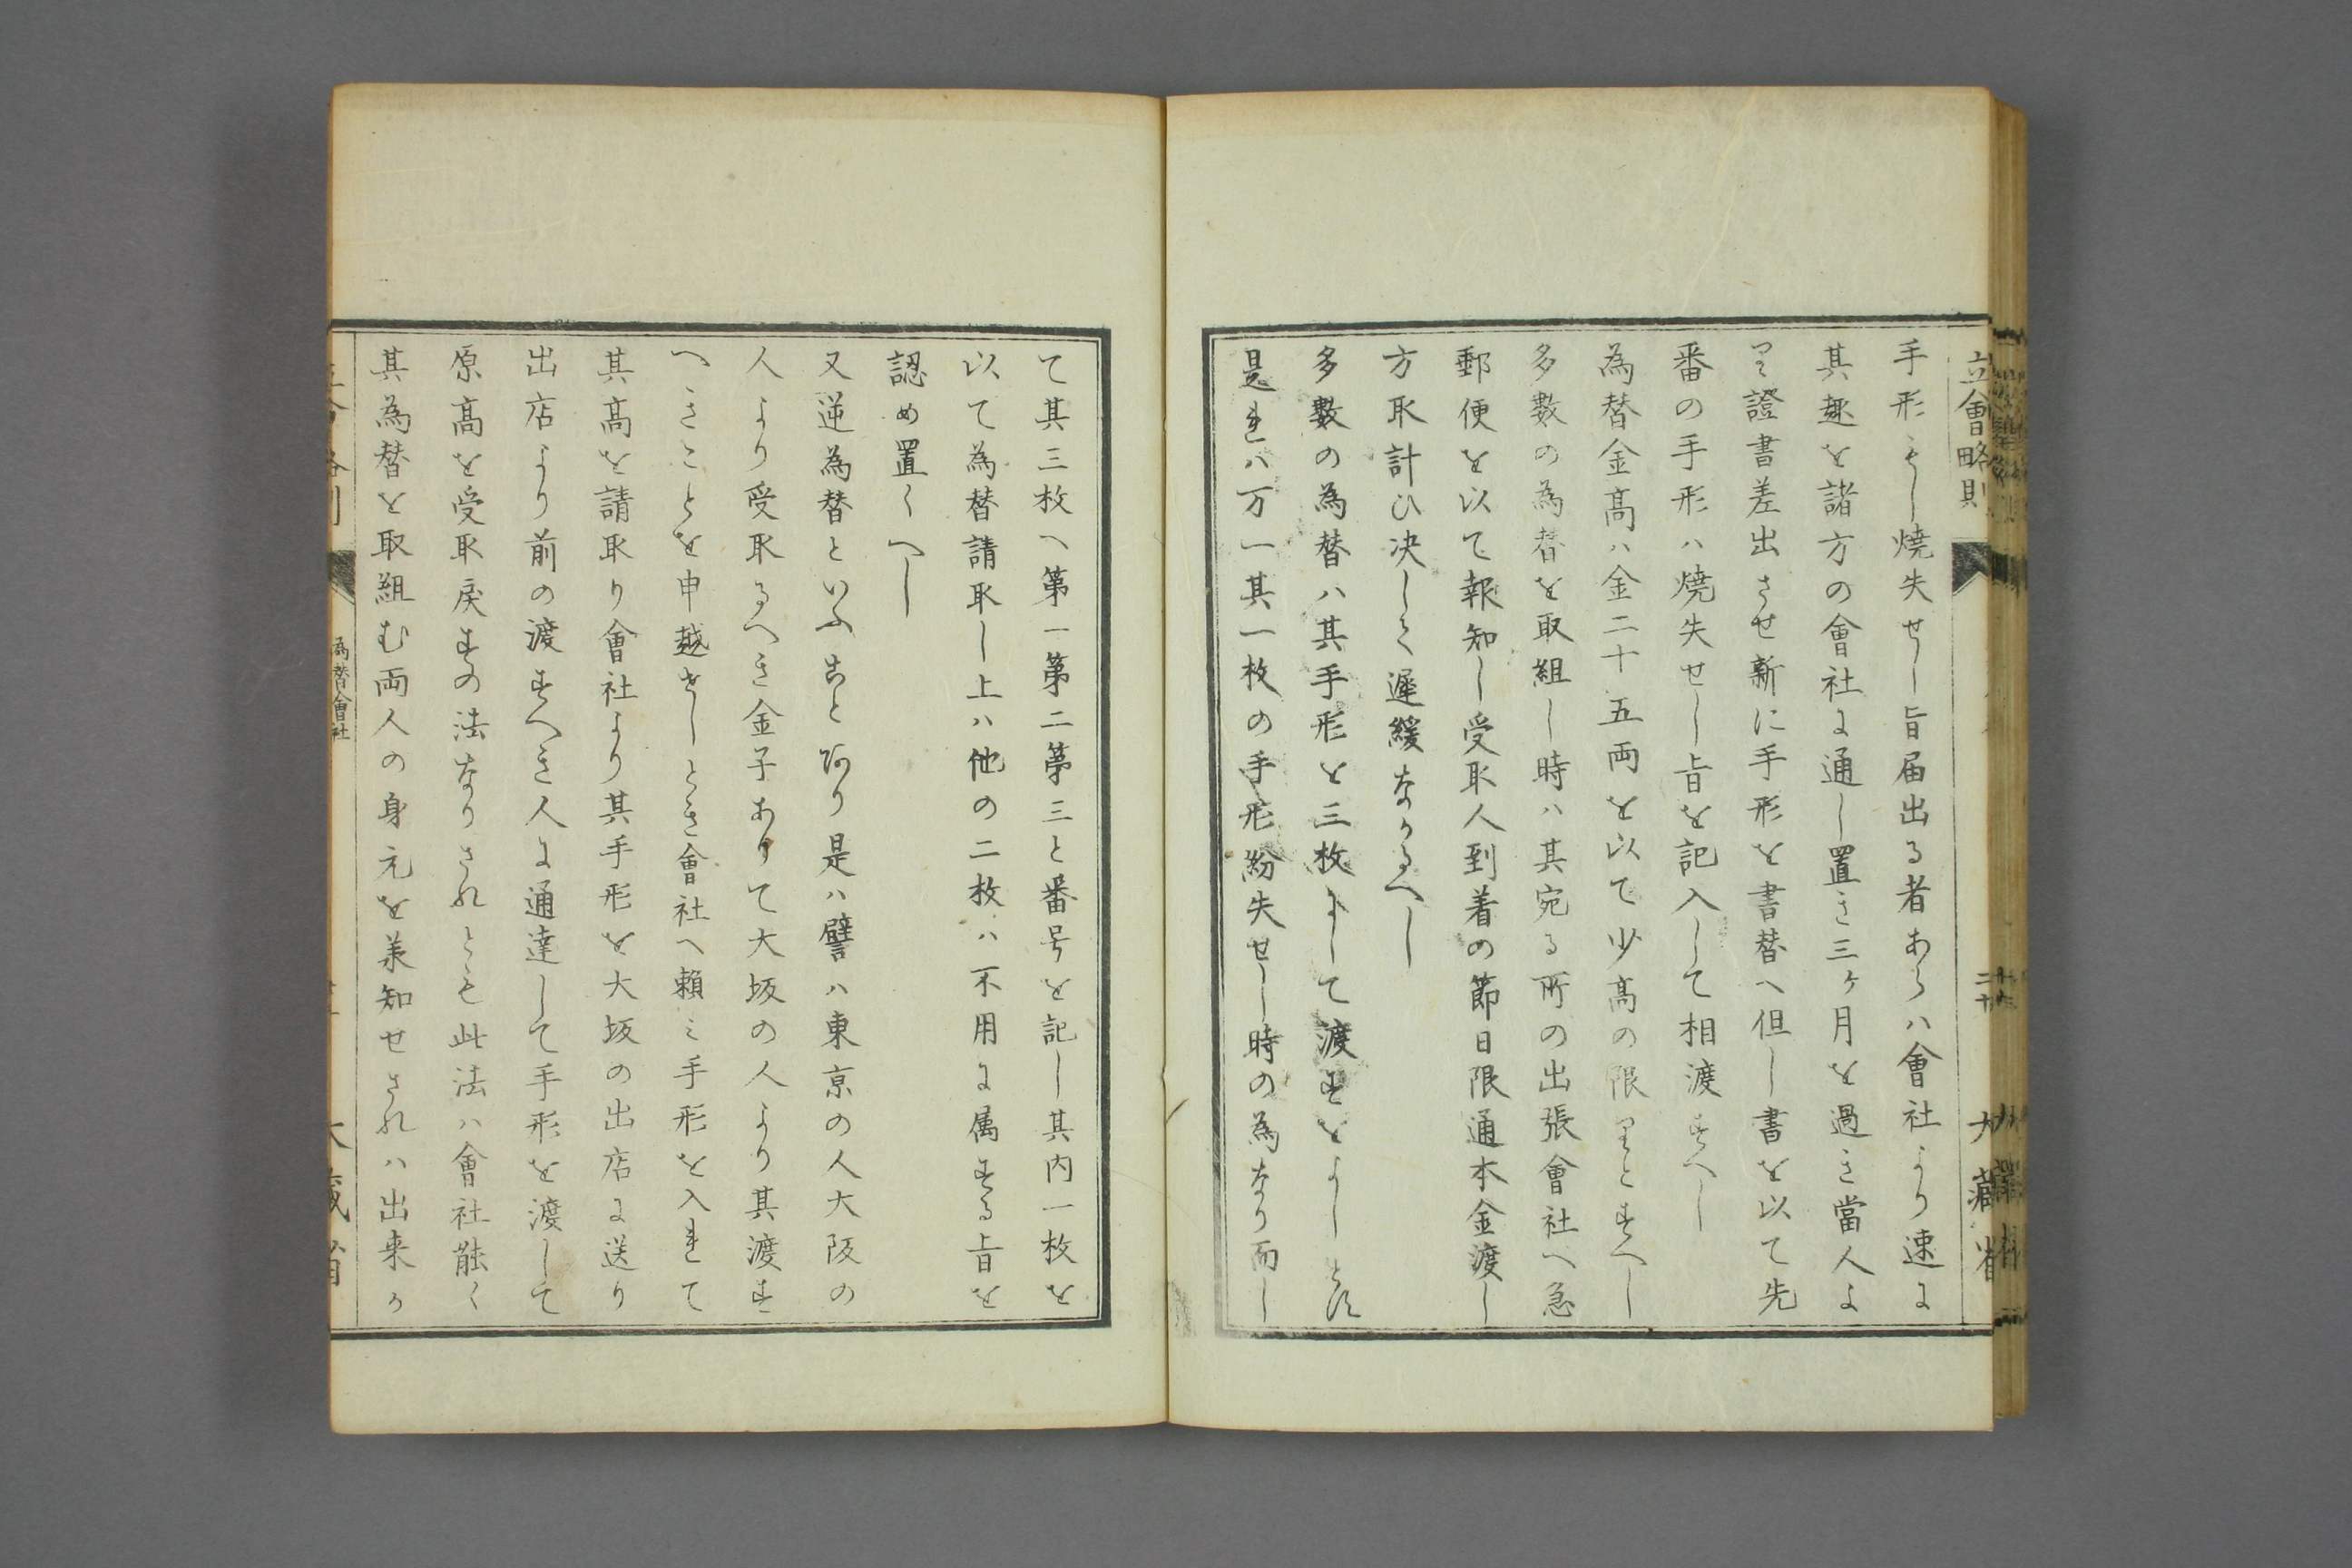 立會略則
手形もし燒失せし旨届出る者あらハ會社より速に
其趣を諸方の會社に通し置き三ヶ月を過き當人よ
り證書差出させ新に手形を書替へ但し書を以て先
番の手形ハ燒失せし旨を記入して相渡すへし
為替金高ハ金二十五両を以て少高の限りとすへし
多數の為替を取組し時ハ其宛る所の出張會社へ急
郵便を以て報知し受取人到着の節日限通本金渡し
方取計ひ决して遲緩なかるへし
多數の為替ハ其手形を三枚にして渡すをよしとす
是れハ万一其一枚の手形紛失せし時の為なり而し
二十
大藏省
て其三枚へ第一第二第三と番号を記し其内一枚を
以て為替請取し上ハ他の二枚ハ不用に属する旨を
認め置くへし
又逆為替といふあとあり是ハ譬ハ東京の人大阪の
人より受取るへき金子ありて大坂の人より其渡す
へきことを申越せしとき會社へ頼ミ手形を入れて
其高を請取り會社より其手形を大坂の出店に送り
出店より前の渡すへき人に通達して手形を渡して
原高を受取戻すの法なりされとも此法ハ會社能く
其為替を取組む両人の身元を承知せされハ出来か
為替會社
大藏省